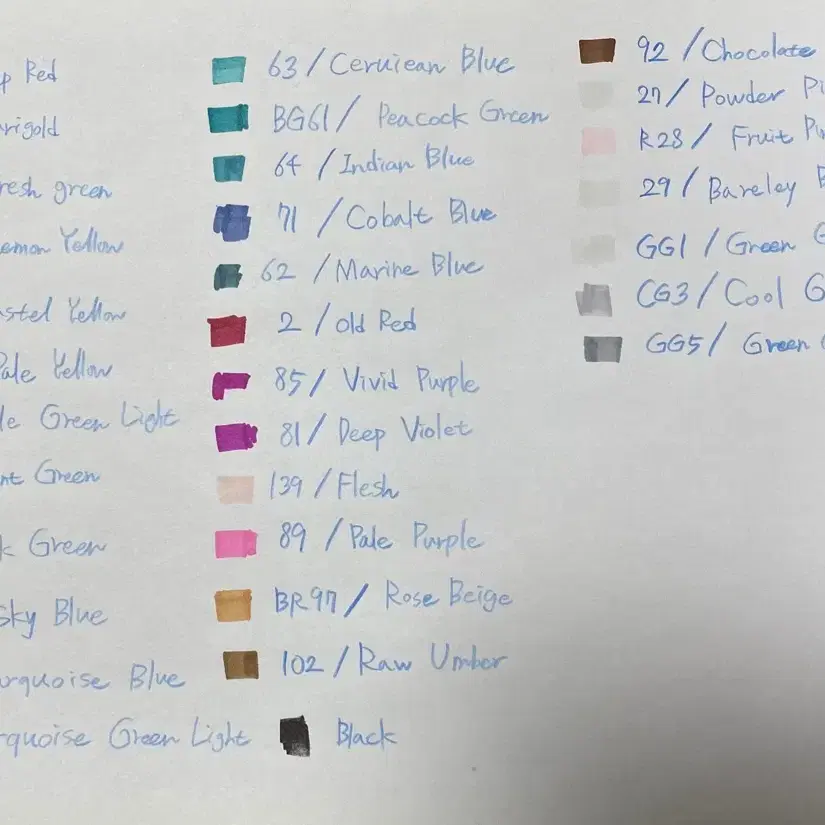 p Red
rigold
resh green
emon Yellow
stel Yellow
Pale Yellow
le Green Light
nt Green
k Green
Sky Blue
urquoise Blue
rquoise Green Light
63 / Ceruiean Blue
BG61 / Peacock Green
64 / Indian Blue
71 / Cobalt Blue
62 / Marine Blue
2 / Old Red
85 / Vivid Purple
81 / Deep Violet
139 / Flesh
89 / Pale Purple
BR97 / Rose Beige
102 / Raw Umber
Black
92 / Chocolate
27 / Powder Pi
R28 / Fruit Pin
29 / Bareley B
GG1 / Green G
CG3 / Cool G
GG5 / Green